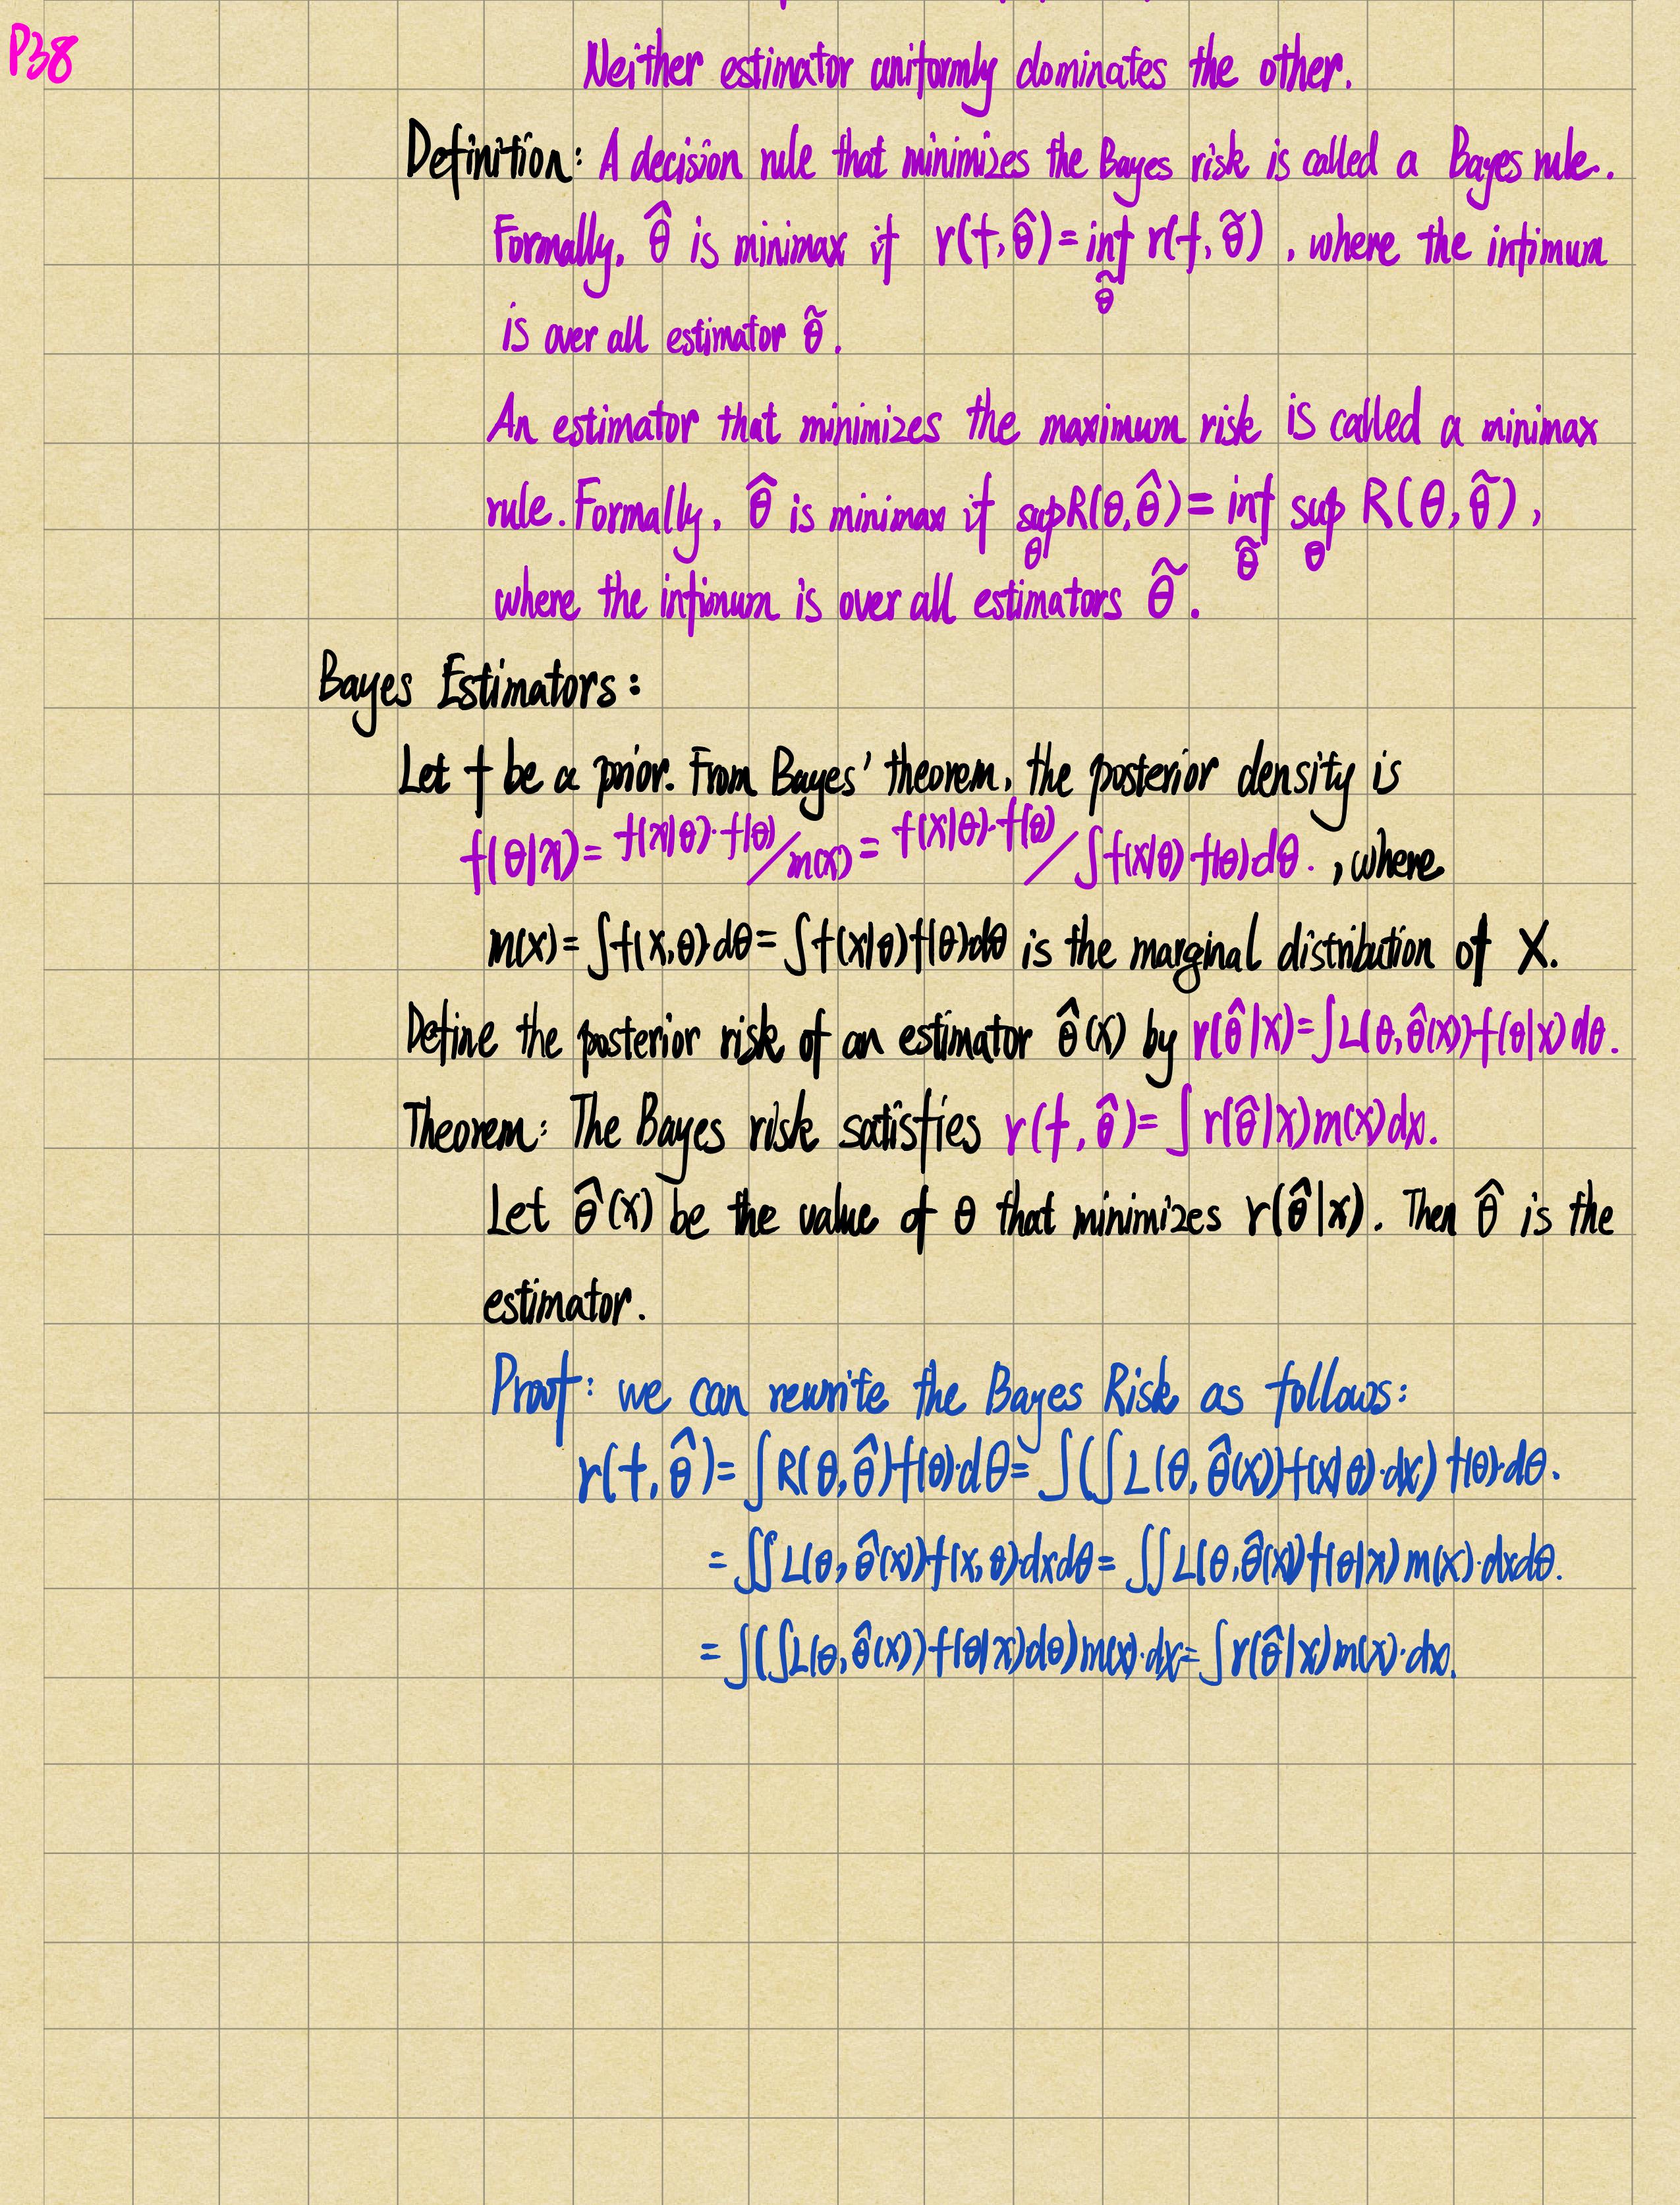 P38
Neither estimator uniformly dominates the other.
Definition: A decision rule that minimizes the Bayes risk is called a Bayes rule.
Formally, θ̂ is minimax if r(f, θ̂) = inf_θ̃ r(f, θ̃), where the infimum
is over all estimator θ̃.
An estimator that minimizes the maximum risk is called a minimax
rule. Formally, θ̂ is minimax if sup_θ R(θ, θ̂) = inf_θ̃ sup_θ R(θ, θ̃),
where the infimum is over all estimators θ̃.
Bayes Estimators:
Let f be a prior. From Bayes' theorem, the posterior density is
f(θ|x) = f(x|θ)·f(θ)/m(x) = f(x|θ)·f(θ)/∫f(x|θ)f(θ)dθ., where
m(x) = ∫f(x,θ)dθ = ∫f(x|θ)f(θ)dθ is the marginal distribution of X.
Define the posterior risk of an estimator θ̂(x) by r(θ̂|x) = ∫L(θ, θ̂(x))f(θ|x)dθ.
Theorem: The Bayes risk satisfies r(f, θ̂) = ∫r(θ̂|x)m(x)dx.
Let θ̂(x) be the value of θ that minimizes r(θ̂|x). Then θ̂ is the
estimator.
Proof: we can rewrite the Bayes Risk as follows:
r(f, θ̂) = ∫R(θ, θ̂)f(θ)·dθ = ∫(∫L(θ, θ̂(x))f(x|θ)·dx)f(θ)·dθ.
= ∬L(θ, θ̂(x))f(x,θ)·dxdθ = ∬L(θ, θ̂(x))f(θ|x)m(x)·dxdθ.
= ∫(∫L(θ, θ̂(x))f(θ|x)dθ)m(x)·dx = ∫r(θ̂|x)m(x)·dx.